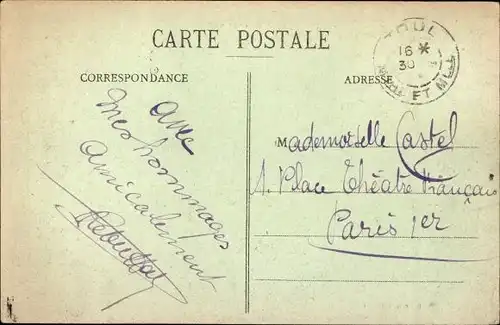 CARTE POSTALE
CORRESPONDANCE
ADRESSE
TOUL
16 *
30
MTHE ET MLLE
avec
mes hommages
amicalement
Mademoiselle Castel
1. Place Théâtre Français
Paris 1er